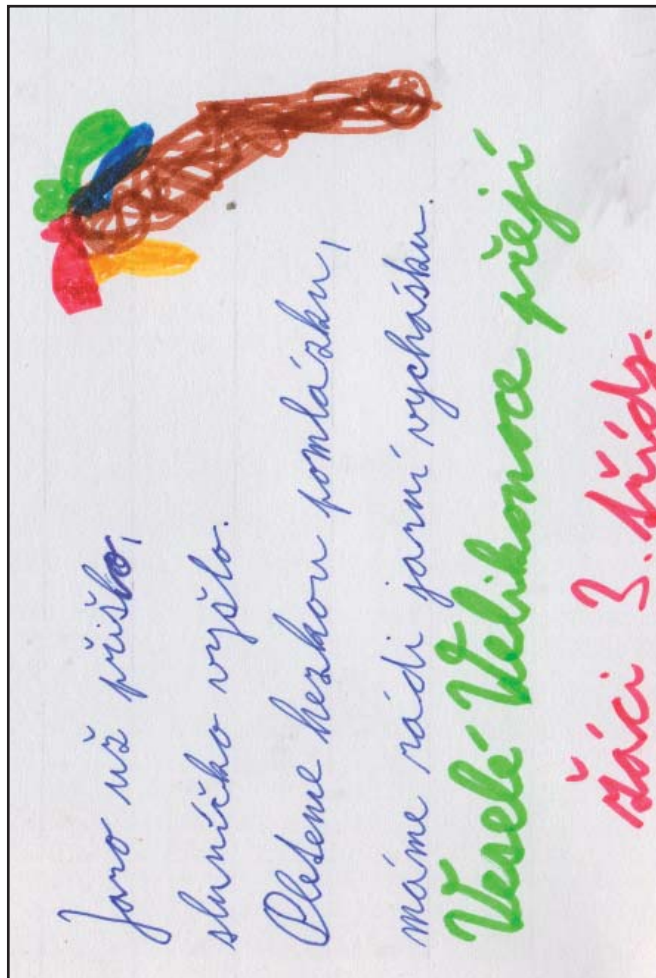 Jaro už přišlo,
sluníčko vyšlo.
Pleteme hezkou pomlázku,
máme rádi jarní vycházku.
Veselé Velikonoce přejí
žáci 3. třídy.